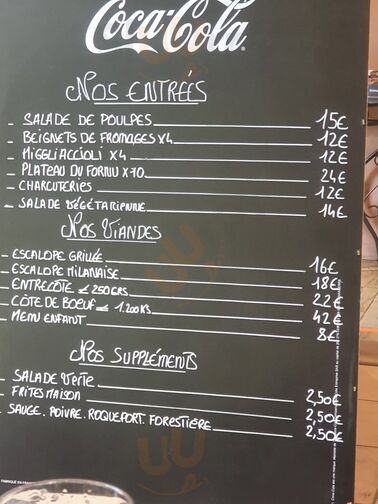 Coca-Cola
NOS ENTRÉES
– SALADE DE POULPES 15€
– BEIGNETS DE FROMAGES X4 12€
– MIGGLIACCIOLI X4 12€
– PLATEAU DU FORNU X10 24€
– CHARCUTERIES 12€
– SALADE VÉGÉTARIENNE 14€
NOS VIANDES
– ESCALOPE GRILLÉE 16€
– ESCALOPE MILANAISE 18€
– ENTRECÔTE ≤ 250GRS 22€
– CÔTE DE BOEUF ≤ 1.200KS 42€
– MENU ENFANT 8€
NOS SUPPLÉMENTS
– SALADE VERTE 2,50€
– FRITES MAISON 2,50€
– SAUGE. POIVRE. ROQUEFORT. FORESTIÈRE 2,50€